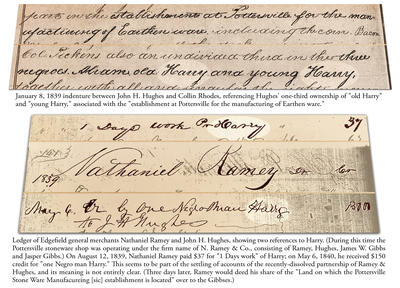 part in the establishment at Pottersville for the man-
ufacturing of Earthen ware, including the corn Bacon
Col. Pickens also an undivided third in the three
negroes Abram, old Harry and young Harry,
together with all and
January 8, 1839 indenture between John H. Hughes and Collin Rhodes, referencing Hughes' one-third ownership of "old Harry"
and "young Harry," associated with the "establishment at Pottersville for the manufacturing of Earthen ware."
1 Days work Pr Harry 37
1839 Nathaniel Ramey Cr
May 6. Cr by One Negro Man Harry 150.00
to J H Hughes
Ledger of Edgefield general merchants Nathaniel Ramey and John H. Hughes, showing two references to Harry. (During this time the
Pottersville stoneware shop was operating under the firm name of N. Ramey & Co., consisting of Ramey, Hughes, James W. Gibbs
and Jasper Gibbs.) On August 12, 1839, Nathaniel Ramey paid $37 for "1 Days work" of Harry; on May 6, 1840, he received $150
credit for "one Negro man Harry." This seems to be part of the settling of accounts of the recently-dissolved partnership of Ramey &
Hughes, and its meaning is not entirely clear. (Three days later, Ramey would deed his share of the "Land on which the Pottersville
Stone Ware Manufacturing [sic] establishment is located" over to the Gibbses.)